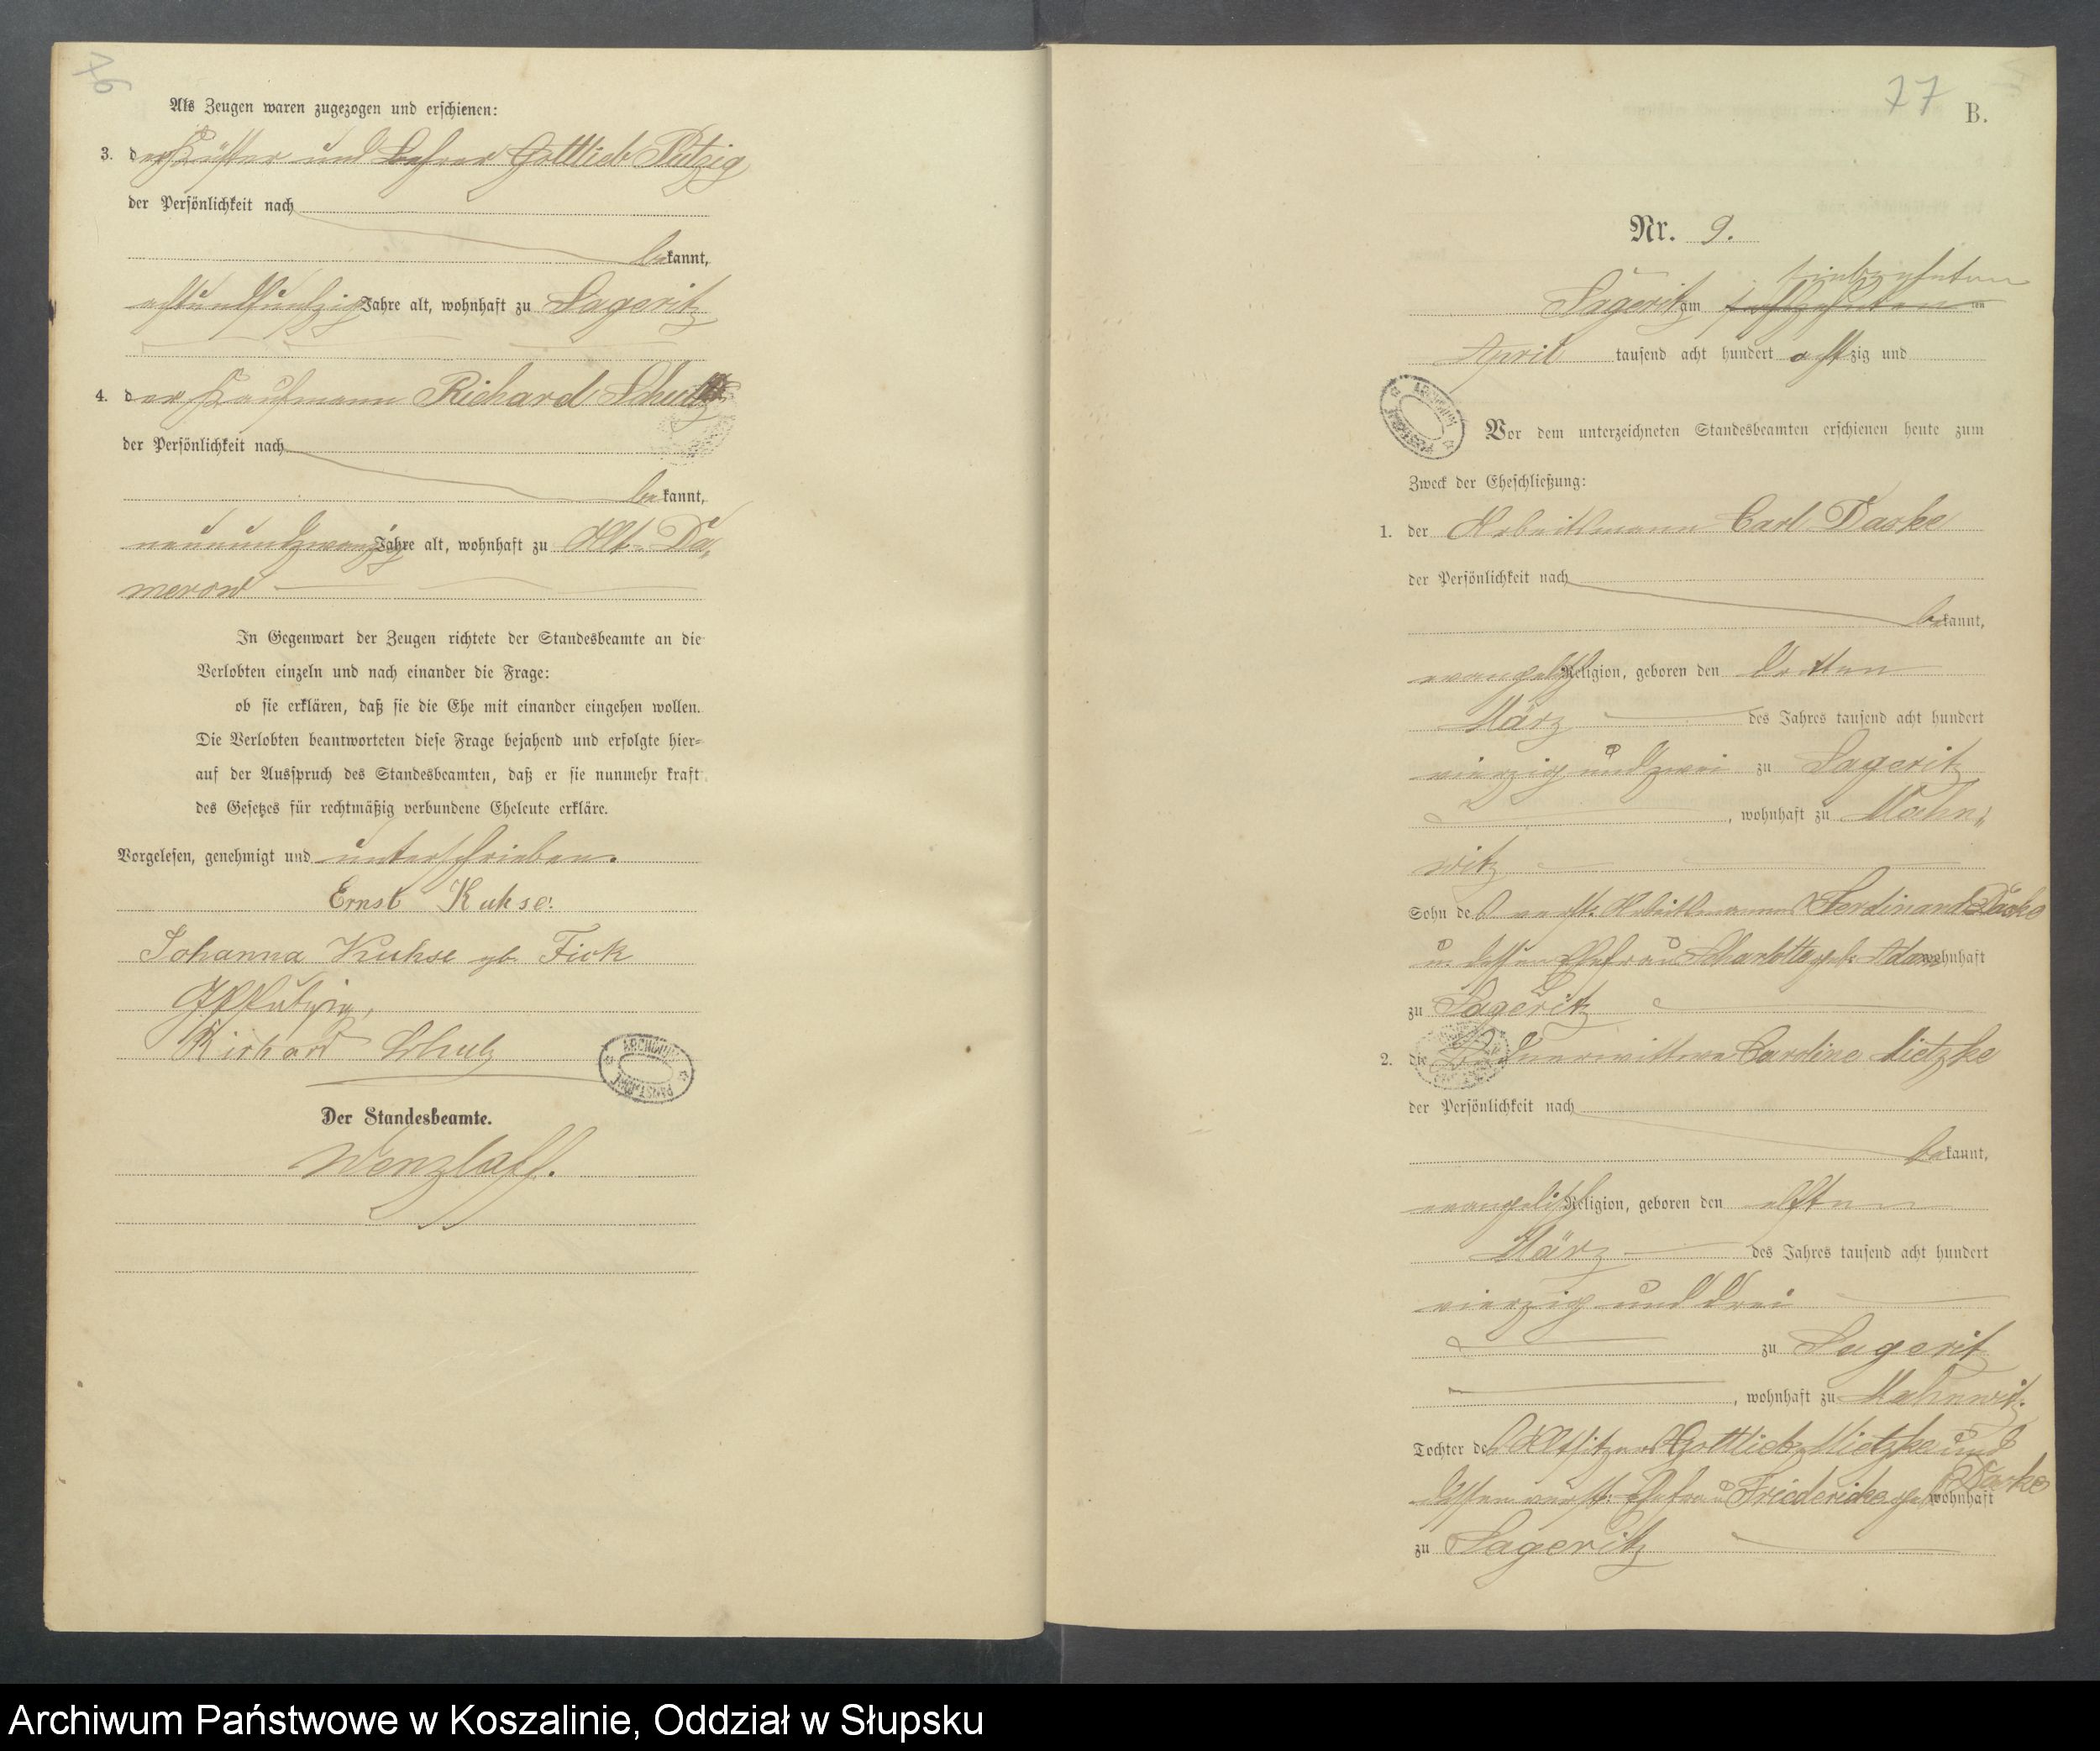 76
Als Zeugen waren zugezogen und erschienen:
3. der Küster und Lehrer Gottlieb
der Persönlichkeit nach
bekannt,
achtundfünfzig Jahre alt, wohnhaft zu Sageritz
4. der Kaufmann Richard Schulz
der Persönlichkeit nach
bekannt,
neunundzwanzig Jahre alt, wohnhaft zu Alt-Da-
merow
In Gegenwart der Zeugen richtete der Standesbeamte an die
Verlobten einzeln und nach einander die Frage:
ob sie erklären, daß sie die Ehe mit einander eingehen wollen.
Die Verlobten beantworteten diese Frage bejahend und erfolgte hier-
auf der Ausspruch des Standesbeamten, daß er sie nunmehr kraft
des Gesetzes für rechtmäßig verbundene Eheleute erkläre.
Vorgelesen, genehmigt und unterschrieben.
Ernst Kuhse.
Johanna Kuhse gb. Fick
Richard Schulz
ARCHIWUM PAŃSTWOWE
Der Standesbeamte.
Wenzlaff.
77
B.
Nr. 9.
siebzehnten
Sageritz am sechszehnten ten
April tausend acht hundert achtzig und
ARCHIWUM PAŃSTWOWE
Vor dem unterzeichneten Standesbeamten erschienen heute zum
Zweck der Eheschließung:
1. der Arbeitsmann Carl Daske
der Persönlichkeit nach
bekannt,
evangelisch Religion, geboren den dritten
März des Jahres tausend acht hundert
vierzig und zwei zu Sageritz
, wohnhaft zu Mahn-
witz
Sohn des verst. Arbeitsmanns Ferdinand Daske
u. dessen Ehefrau Charlotte geb. Adam wohnhaft
zu Sageritz
2. die Caroline Mietzke
der Persönlichkeit nach
bekannt,
evangelisch Religion, geboren den elften
März des Jahres tausend acht hundert
vierzig und drei
zu Sagerit
, wohnhaft zu Mahnwitz.
Tochter des Altsitzers Gottlieb Mietzke und
dessen verst. Ehefrau Friedericke geb. Daske wohnhaft
zu Sageritz
Archiwum Państwowe w Koszalinie, Oddział w Słupsku